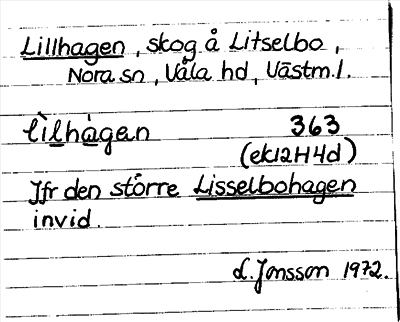 Lillhagen, skog å Litselbo,
Nora sn, Våla hd, Västm. l.
lìlhàgan 363
(ek 12H4d)
Jfr den större Lisselbohagen
invid.
L. Jonsson 1972.